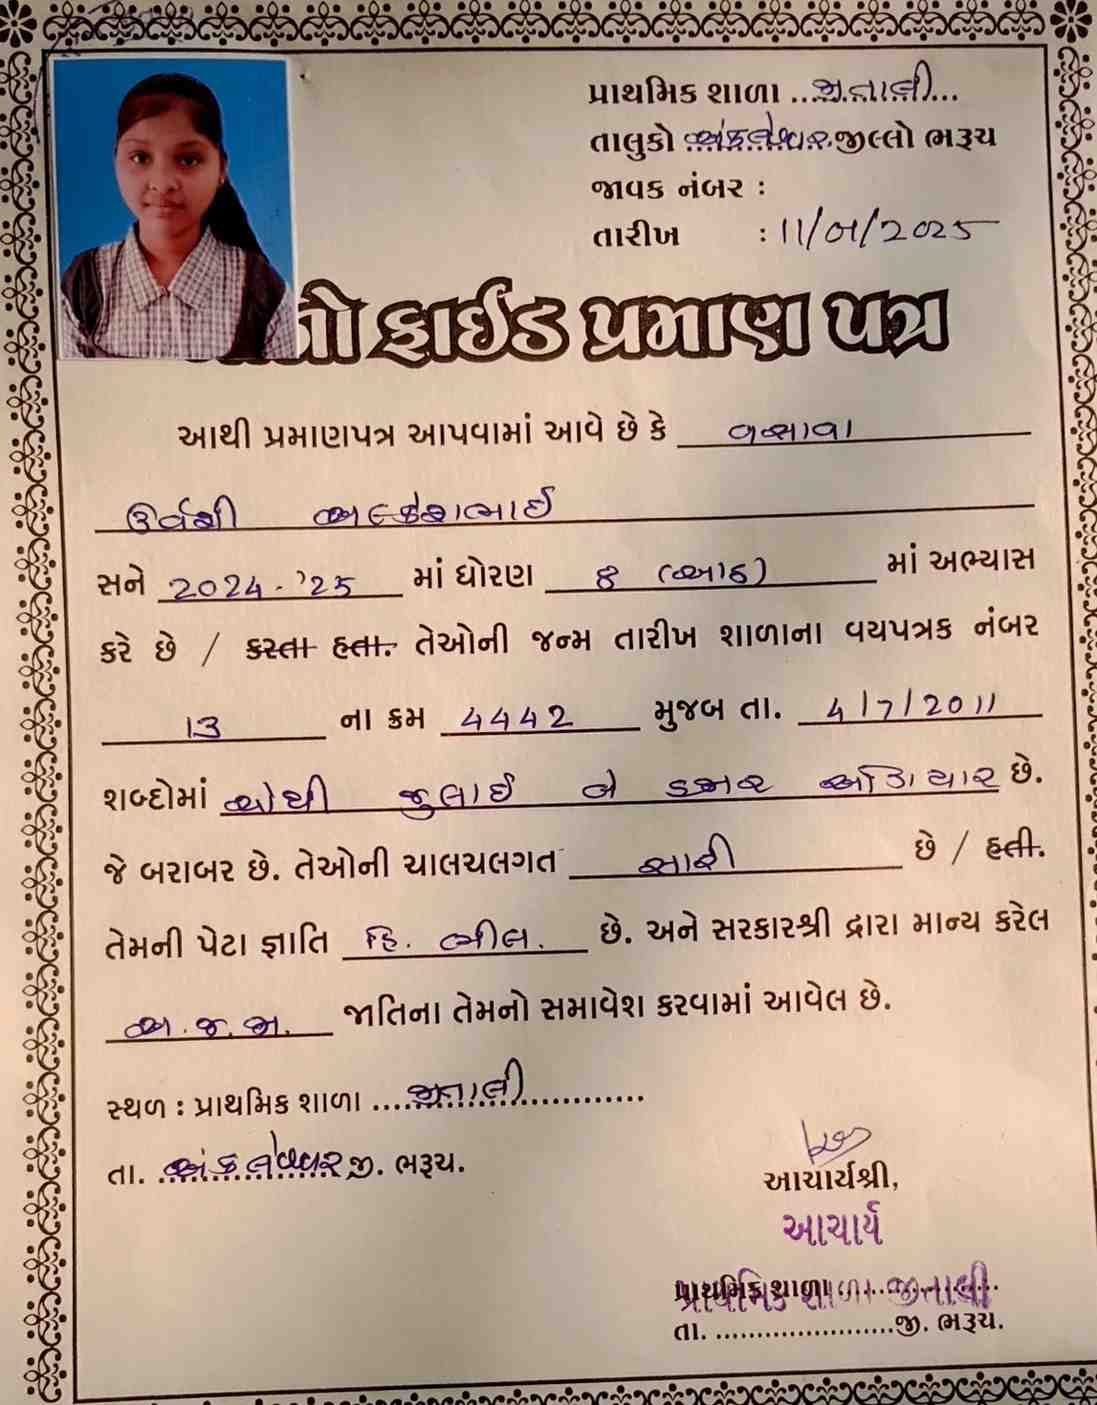 પ્રાથમિક શાળા ...જીતાલી...
તાલુકો અંકલેશ્વર જીલ્લો ભરૂચ
જાવક નંબર :
તારીખ : 11/01/2025
ફાઈડ પ્રમાણ પત્ર
આથી પ્રમાણપત્ર આપવામાં આવે છે કે વસાવા
ઉર્વશી અલ્કેશભાઈ
સને 2024-'25 માં ધોરણ 8 (આઠ) માં અભ્યાસ
કરે છે / કરતા હતા. તેઓની જન્મ તારીખ શાળાના વયપત્રક નંબર
13 ના ક્રમ 4442 મુજબ તા. 4/7/2011
શબ્દોમાં ચોથી જુલાઈ બે હજાર અગિયાર છે.
જે બરાબર છે. તેઓની ચાલચલગત સારી છે / હતી.
તેમની પેટા જ્ઞાતિ હિ. ભીલ. છે. અને સરકારશ્રી દ્વારા માન્ય કરેલ
અ.જ.જા. જાતિના તેમનો સમાવેશ કરવામાં આવેલ છે.
સ્થળ : પ્રાથમિક શાળા ...જીતાલી...
તા. અંકલેશ્વર જી. ભરૂચ.
આચાર્યશ્રી,
આચાર્ય
પ્રાથમિક શાળા ...
પ્રાથમિક શાળા જીતાલી
તા. ...જી. ભરૂચ.